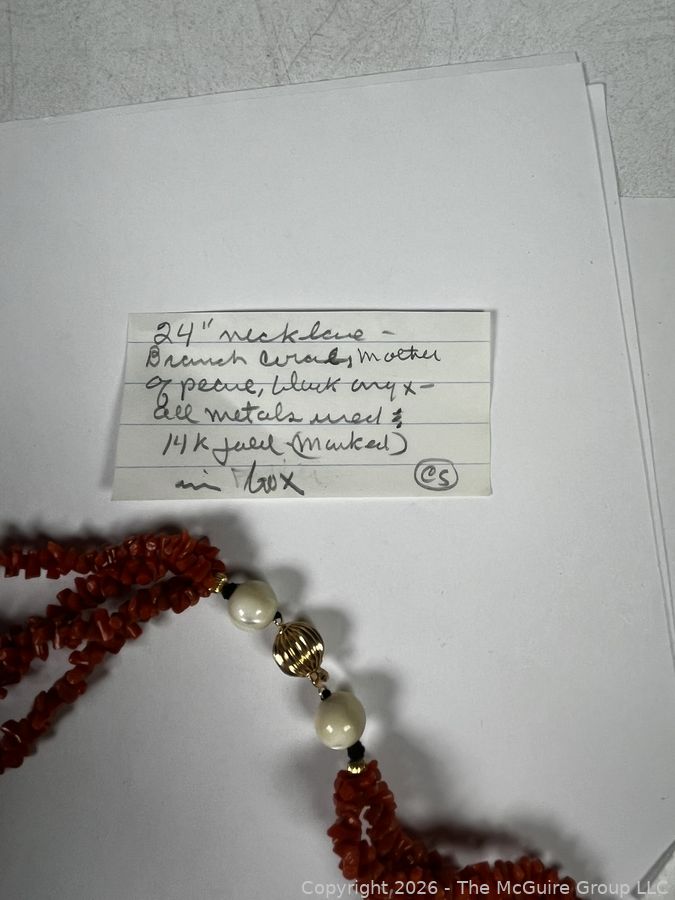 24" necklace -
Branch coral, mother
of pearl, black onyx -
all metals used
14K gold (marked)
in box
CS
Copyright,2026 - The McGuire Group LLC